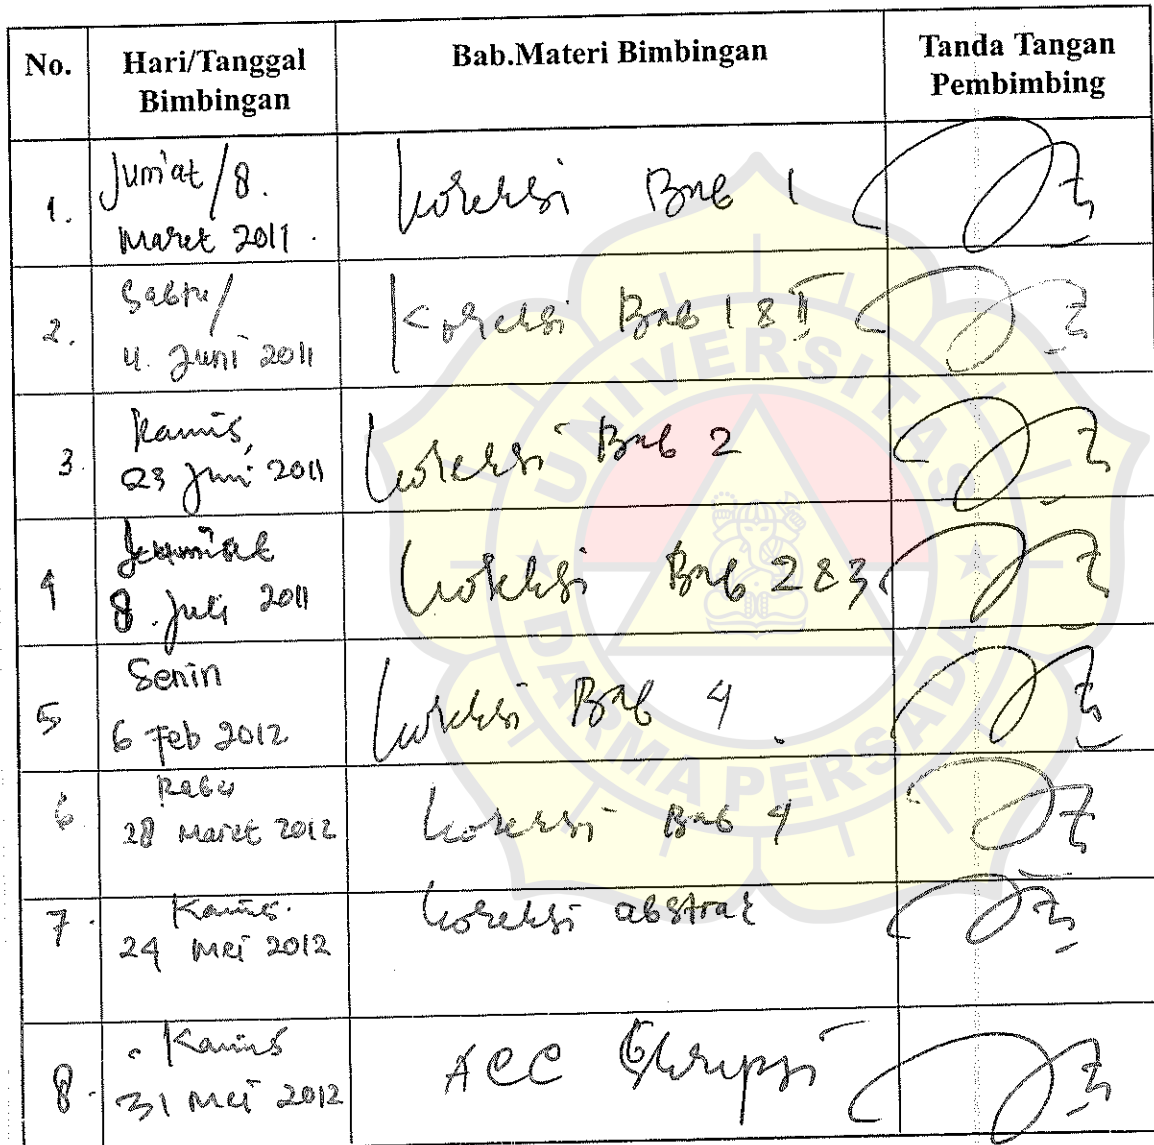 No.
Hari/Tanggal
Bimbingan
Bab.Materi Bimbingan
Tanda Tangan
Pembimbing
1.
Jum'at / 8.
Maret 2011.
Koreksi Bab 1
2.
Sabtu /
4. Juni 2011
Koreksi Bab 1 & II
3.
Kamis,
23 Juni 2011
Koreksi Bab 2
4
Jum'at
8. Juli 2011
Koreksi Bab 2 & 3
5
Senin
6 Feb 2012
Koreksi Bab 4.
6.
Rabu
28 Maret 2012
Koreksi Bab 4
7.
Kamis.
24 Mei 2012
Koreksi abstrak
8.
Kamis
31 Mei 2012
ACC Skripsi
UNIVERSITAS
DARMA PERSADA